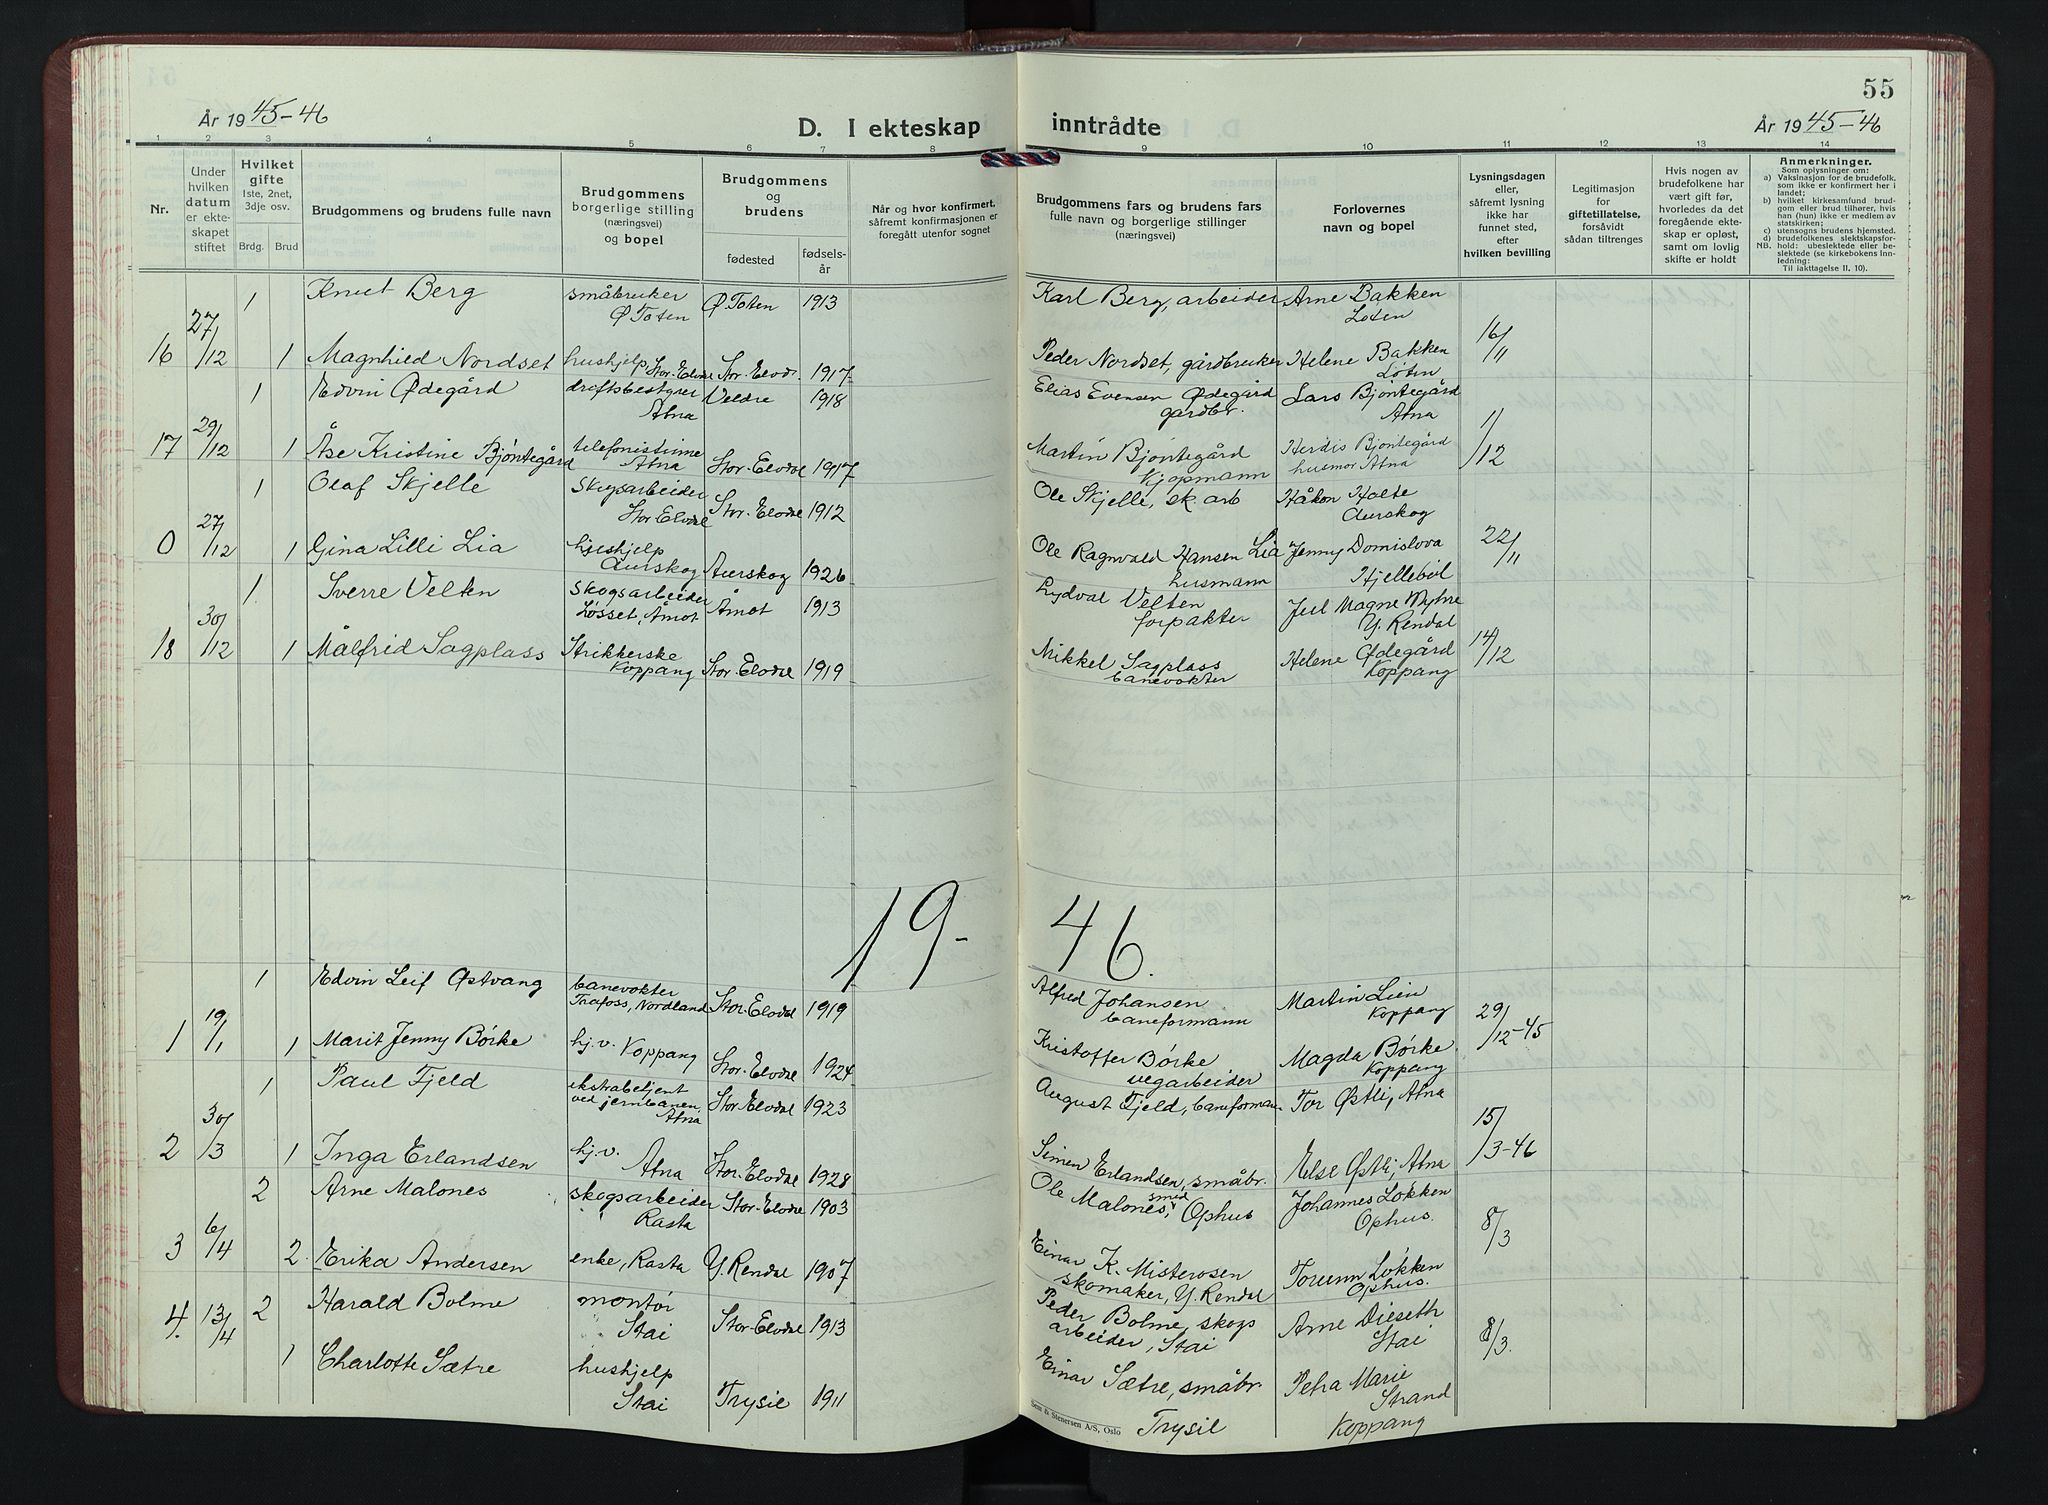 55
År 1945-46
D. I ekteskap inntrådte
År 1945-46
1 2 3 4 5 6 7 8 9 10 11 12 13 14
Nr.
Under hvilken datum er ekteskapet stiftet
Hvilket gifte 1ste, 2net, 3dje osv.
Brdg. Brud
Brudgommens og brudens fulle navn
Brudgommens borgerlige stilling (næringsvei) og bopel
Brudgommens og brudens
fødested
fødselsår
Når og hvor konfirmert, såfremt konfirmasjonen er foregått utenfor sognet
Brudgommens fars og brudens fars fulle navn og borgerlige stillinger (næringsvei)
Forlovernes navn og bopel
Lysningsdagen eller, såfremt lysning ikke har funnet sted, efter hvilken bevilling
Legitimasjon for giftetillatelse, forsåvidt sådan tiltrenges
Hvis nogen av brudefolkene har vært gift før, hvorledes da det foregående ekteskap er opløst, samt om lovlig skifte er holdt
Anmerkninger.
Som oplysninger om:
a) Vaksinasjon for de brudefolk, som ikke er konfirmert her i landet;
b) hvilket kirkesamfund brudgom eller brud tilhører, hvis han (hun) ikke er medlem av statskirken;
c) utensogns brudens hjemsted.
d) brudefolkenes slektskapsforhold: ubeslektede eller beslektede (se kirkebokens innledning:
NB.
Til iakttagelse II. 10).
1 Knut Berg småbruker Ø Toten Ø. Toten 1913 Karl Berg, arbeider Arne Bakken Løten
16 27/12 1 Magnhild Nordset hushjelp, Stor-Elvdal Stor. Elvd. 1917 Peder Nordset, gårdbruker Helene Bakken Løten 16/11
1 Edvin Ødegård driftsbestyrer Atna Veldre 1918 Elias Evensen Ødegård gardbr. Lars Bjøntegård Atna
17 29/12 1 Åse Kristine Bjøntegård telefonistinne Atna Stor-Elvdal 1917 Martin Bjøntegård Kjøpmann Herdis Bjøntegård husmor Atna 1/12
1 Olaf Skjelle Skogsarbeider Stor Elvdal Stor. Elvdal 1912 Ole Skjelle, sk. arb Håkon Holte Aurskog
0 27/12 1 Gina Lilli Lia hushjelp Aurskog Aurskog 1926 Ole Ragnvald Hansen Lia husmann Jenny Domislova Hjellebøl 22/11
1 Sverre Velten Skogsarbeider Løsset, Åmot Åmot 1913 Lydval Velten forpakter Jul Magne Myhre Y. Rendal
18 30/12 1 Målfrid Sagplass Strikkerske Koppang Stor-Elvdal 1919 Mikkel Sagplass banevokter Helene Ødegård Koppang 14/12
19-46.
1 Edvin Leif Østvang banevokter Trafoss, Nordland Stor-Elvdal 1919 Alfred Johansen baneformann Martin Lien Koppang
1 19/1 1 Marit Jenny Børke hj.v. Koppang Stor-Elvdal 1924 Kristoffer Børke vegarbeider Magda Børke Koppang 29/12-45
1 Paul Fjeld ekstrabetjent ved jernbanen, Atna Stor-Elvdal 1923 August Fjeld, baneforman Tor Østli, Atna
2 30/3 1 Inga Erlandsen hj.v. Atna Stor-Elvdal 1928 Simen Erlandsen, småbr. Else Østli, Atna 15/3-46
2 Arne Malones skogsarbeider Rasta Stor-Elvdal 1903 Ole Malones, smed Ophus Johannes Løkken Ophus.
3 6/4 2. Erika Andersen enke, Rasta Y. Rendal 1907 Einar K. Misterosen skomaker, Y. Rendal Torunn Løkken Ophus. 8/3
4. 13/4 2 Harald Bolme montør Stai Stor-Elvdal 1913 Peder Bolme, skogsarbeider, Stai Arne Dieseth Stai 8/3.
1 Charlotte Sætre hushjelp Stai Trysil 1911 Einar Sætre, småbr. Trysil Petra Marie Strand Koppang
Sem & Stenersen A/S, Oslo